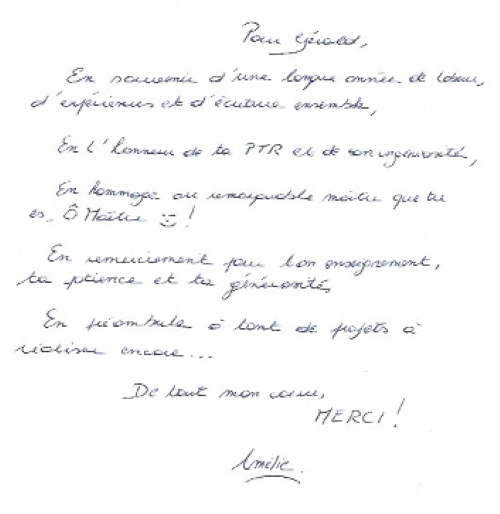 Pour Gérald,
En souvenir d'une longue année de labeur,
d'expériences et d'écriture ensemble,
En l'honneur de ta PTR et de son ingéniosité,
En hommage au remarquable maître que tu
es, Ô Maître !
En remerciement pour ton enseignement,
ta patience et ta générosité,
En préambule à tant de projets à
réaliser encore...
De tout mon coeur,
MERCI !
Amélie.